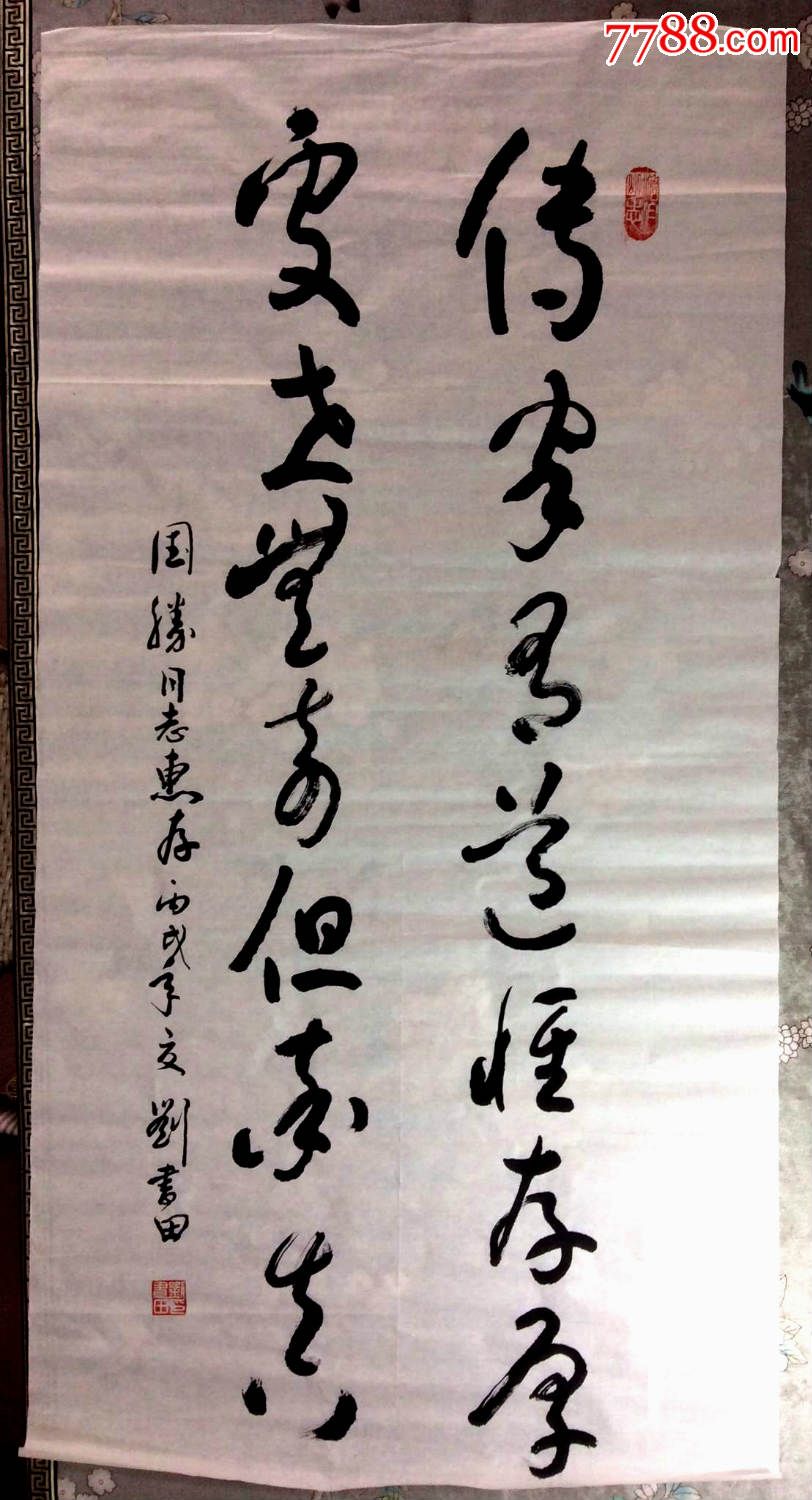 7788.com
傳家有道惟存厚
處世無奇但率真
国勝同志惠存丙戌年夏劉書田
劉書田